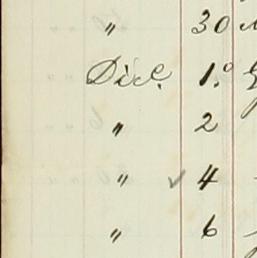 " 30
Dice. 1.º
" 2
" ✓ 4
" 6